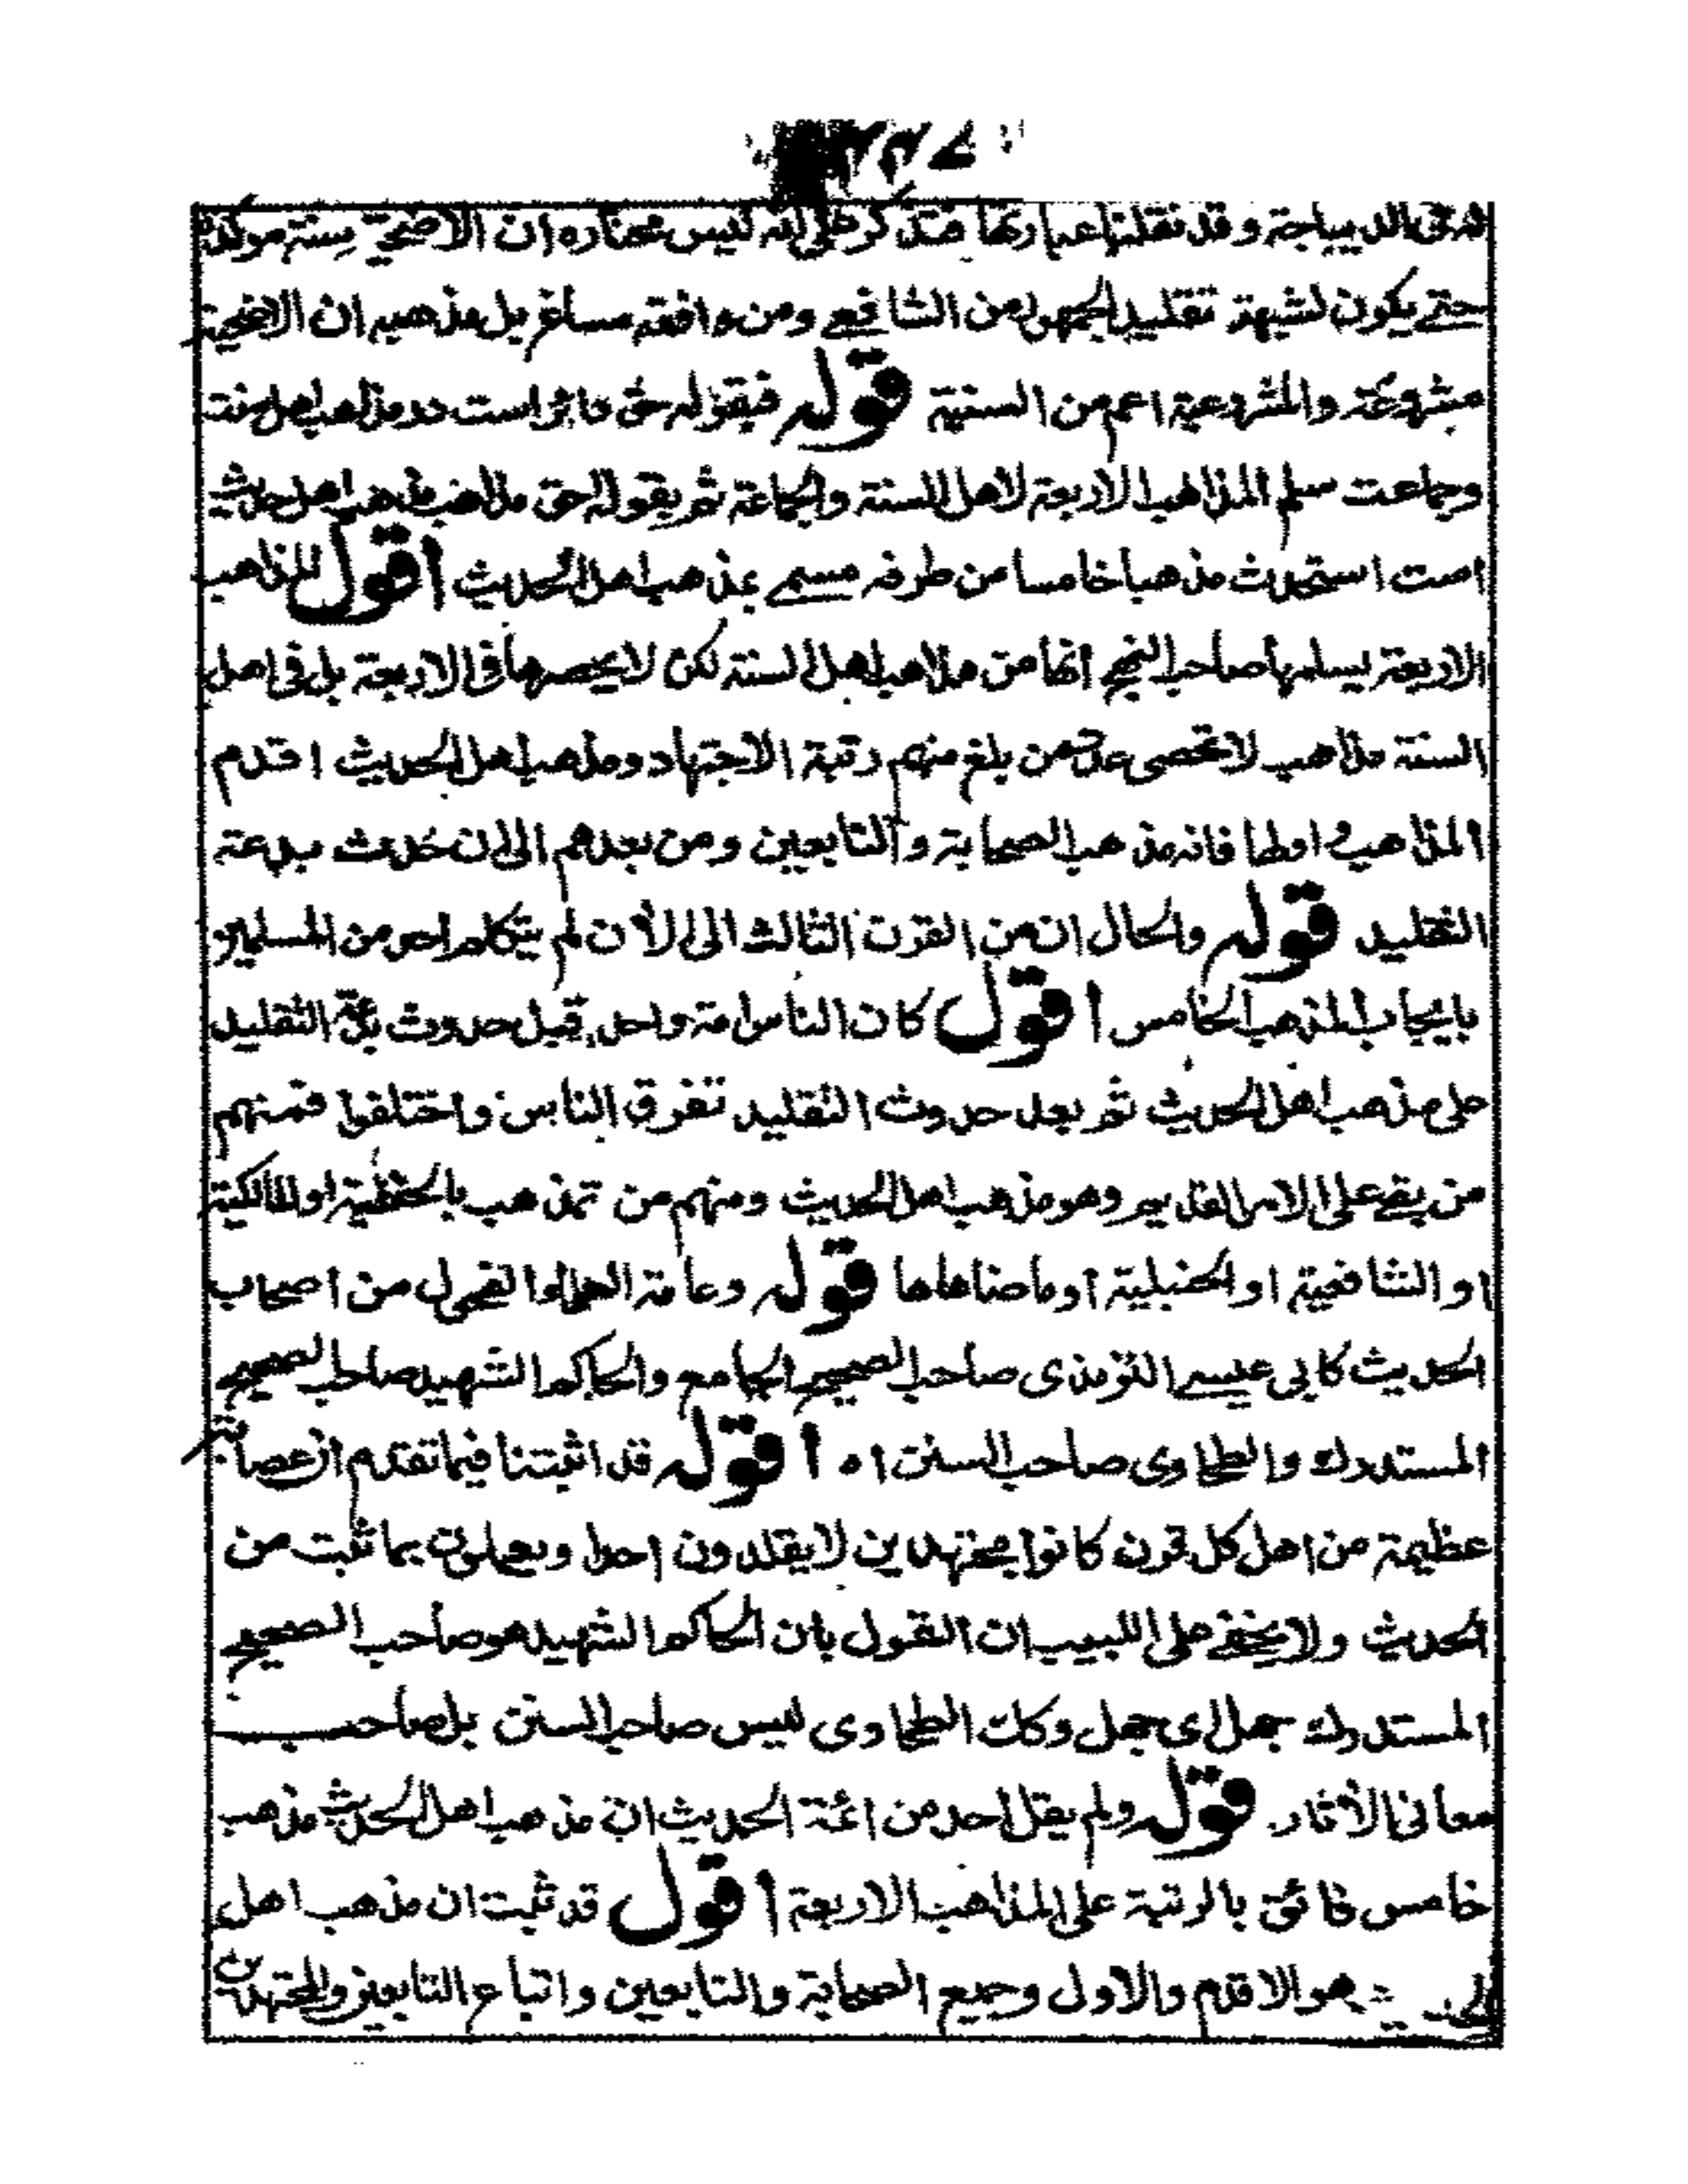 فى الديباجة وقد نقلنا عبارتها فتذكر على انه ليس مختاره ان الاضحية سنة موكدة
حتے يكون لشبهة تقليد الجمهور من الشافعے ومن وافقه مساغ بل مذهبه ان الاضحية
مشروعة والمشروعية اعم من السنية قوله فيقوله حق دائر است در مذاهب اهل سنت
وجماعت سلم المذاهب الاربعة لاهل السنة والجماعة ثم يقوله حق مذهب اهل حديث
است استحدث مذهبا خامسا من طرفه مسمے بمذهب اهل الحديث اقول المذاهب
الاربعة يسلمها صاحب النهج انها من مذاهب اهل السنة لكن لا يحصرها فى الاربعة بل فى اهل
السنة مذاهب لا تحصى عدد من بلغ منهم رتبة الاجتهاد ومذهب اهل الحديث اقدم
المذاهب واولها فانه مذهب الصحابة والتابعين ومن بعدهم الى ان حدثت بدعة
التقليد قوله والحال ان من القرن الثالث الى الآن لم يتكلم احد من المسلمين
بايجاب المذهب الخامس اقول كان الناس امة واحدة قبل حدوث بدعة التقليد
على مذهب اهل الحديث ثم بعد حدوث التقليد تفرق الناس واختلفوا فمنهم
من بقے على الامر القديم وهو مذهب اهل الحديث ومنهم من تمذهب بالحنفية او المالكية
او الشافعية او الحنبلية او ما ضاهاها قوله وعامة العلماء الفحول من اصحاب
الحديث كابى عيسے الترمذى صاحب الصحيح الجامع والحاكم الشهيد صاحب الصحيح
المستدرك والطحاوى صاحب السنن اه اقول قد اثبتنا فيما تقدم ان عصابة
عظيمة من اهل كل قرن كانوا مجتهدين لا يقلدون احدا ويعملون بما ثبت من
الحديث ولا يخفے على اللبيب ان القول بان الحاكم الشهيد هو صاحب الصحيح
المستدرك جهل اى جهل وكذا الطحاوى ليس صاحب السنن بل صاحب
معانى الآثار قوله ولم يقل احد من ائمة الحديث ان مذهب اهل الحديث مذهب
خامس فائق بالرتبة على المذاهب الاربعة اقول قد ثبت ان مذهب اهل
الحديث هو الاقدم والاول وجميع الصحابة والتابعين واتباع التابعين والمجتهدين